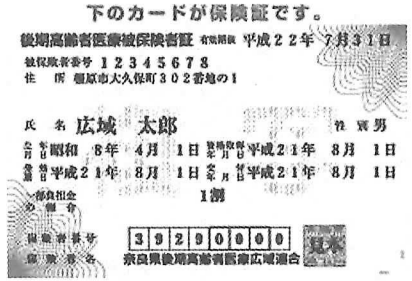 下のカードが保険証です。
後期高齢者医療被保険者証 有効期限 平成22年 7月31日
被保険者番号 12345678
住 所 橿原市大久保町302番地の1
氏 名 広域 太郎 性別 男
生年月日 昭和 8年 4月 1日 資格取得年月日 平成21年 8月 1日
平成21年 8月 1日 平成21年 8月 1日
一部負担金の割合 1割
保険者番号 39290000 見本
保険者名 奈良県後期高齢者医療広域連合